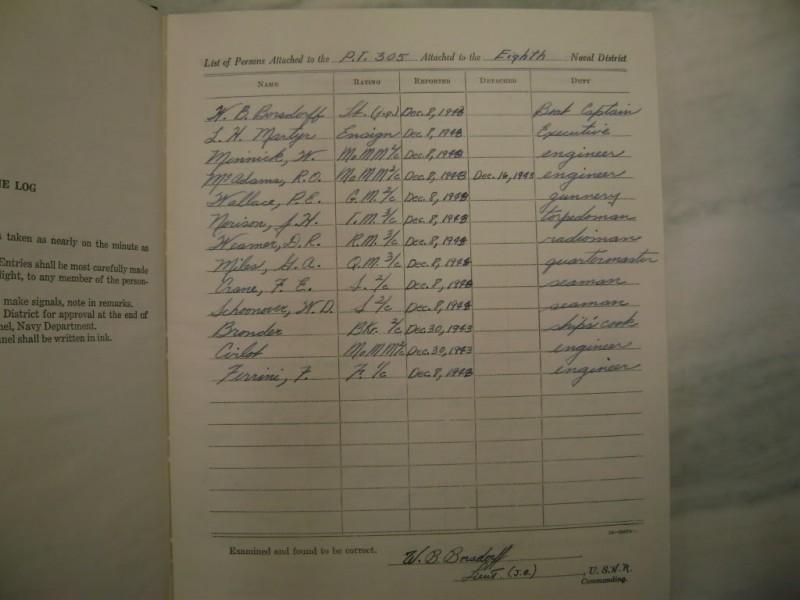 NE LOG
s taken as nearly on the minute as
Entries shall be most carefully made
light, to any member of the person-
make signals, note in remarks.
District for approval at the end of
nel, Navy Department.
nel shall be written in ink.
List of Persons Attached to the P.T. 305 Attached to the Eighth Naval District
NAME RATING REPORTED DETACHED DUTY
W. B. Borsdorff Lt. (j.g.) Dec. 8, 1943 Boat Captain
L. H. Martyr Ensign Dec. 8, 1943 Executive
Minnick, W. Mo.M.M. Dec. 8, 1943 engineer
McAdams, R.O. Mo.M.M. 2/c Dec. 8, 1943 Dec. 16, 1943 engineer
Wallace, P.E. G.M. 2/c Dec. 8, 1943 gunnery
Nerison, J.H. T.M. 3/c Dec. 8, 1943 torpedoman
Weamer, D.R. R.M. 3/c Dec. 8, 1943 radioman
Miles, G.A. Q.M. 3/c Dec. 8, 1943 quartermaster
Crane, F. E. S. 2/c Dec. 8, 1943 seaman
Schoonover, W.D. S 2/c Dec. 8, 1943 seaman
Bronder Bkr. 2/c Dec. 30, 1943 ship's cook
Mo.M.M. Dec. 30, 1943 engineer
Ferrini, F. F. 1/c Dec. 8, 1943 engineer
Examined and found to be correct. W. B. Borsdorff
Lieut. (j.g.) , U.S.N.R.
Commanding.